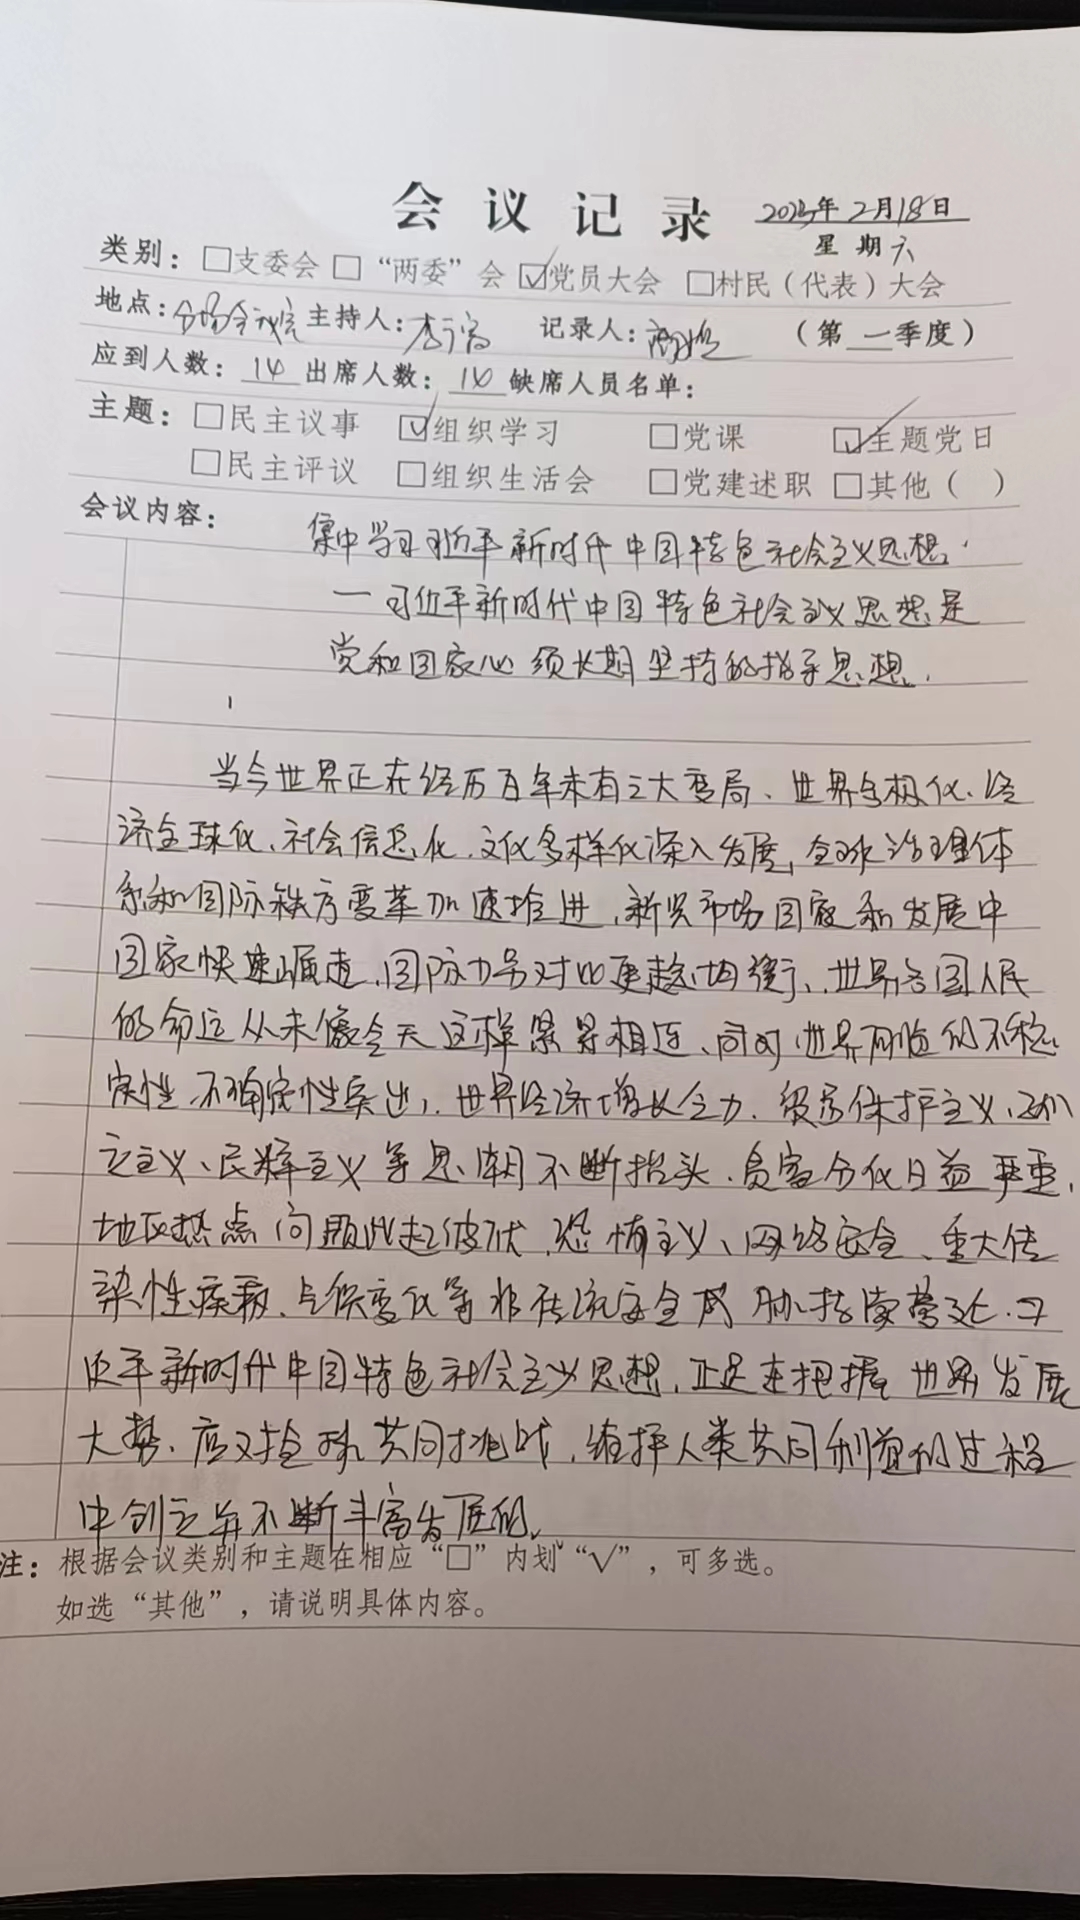 会议记录 2023年2月18日
星期六
类别：□支委会 □“两委”会 ☑党员大会 □村民（代表）大会
地点：会议室 主持人： 记录人： （第一季度）
应到人数：14 出席人数：14 缺席人员名单：
主题：□民主议事 ☑组织学习 □党课 ☑主题党日
□民主评议 □组织生活会 □党建述职 □其他（ ）
会议内容：
集中学习习近平新时代中国特色社会主义思想.
一习近平新时代中国特色社会主义思想是
党和国家必须长期坚持的指导思想.
当今世界正在经历百年未有之大变局、世界多极化、经
济全球化、社会信息化、文化多样化深入发展,全球治理体
系和国际秩序变革加速推进,新兴市场国家和发展中
国家快速崛起,国际力量对比更趋均衡,世界各国人民
的命运从未像今天这样紧紧相连、同时世界面临的不稳
定性、不确定性突出,世界经济增长乏力、贸易保护主义、孤
立主义、民粹主义等思潮不断抬头、贫富分化日益严重,
地区热点问题此起彼伏,恐怖主义、网络安全、重大传
染性疾病、气候变化等非传统安全威胁持续蔓延.习
近平新时代中国特色社会主义思想,正是在把握世界发展
大势、应对全球共同挑战,维护人类共同利益的过程
中创立并不断丰富发展的、
注：根据会议类别和主题在相应“□”内划“√”，可多选。
如选“其他”，请说明具体内容。